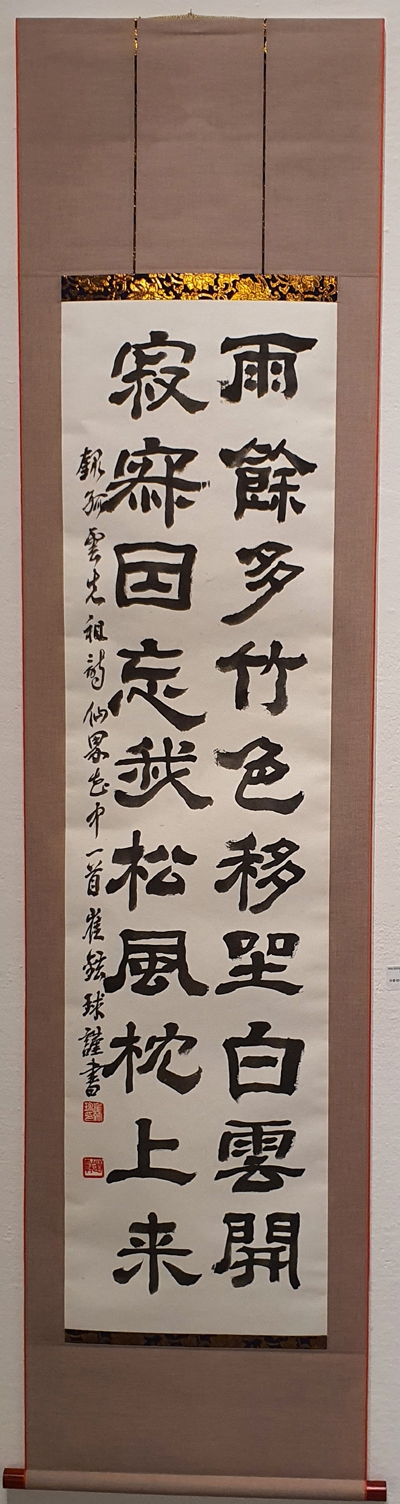 雨餘多竹色移坐白雲開
寂寂因忘我松風枕上来
録孤雲先祖詩仙界中一首崔球謹書